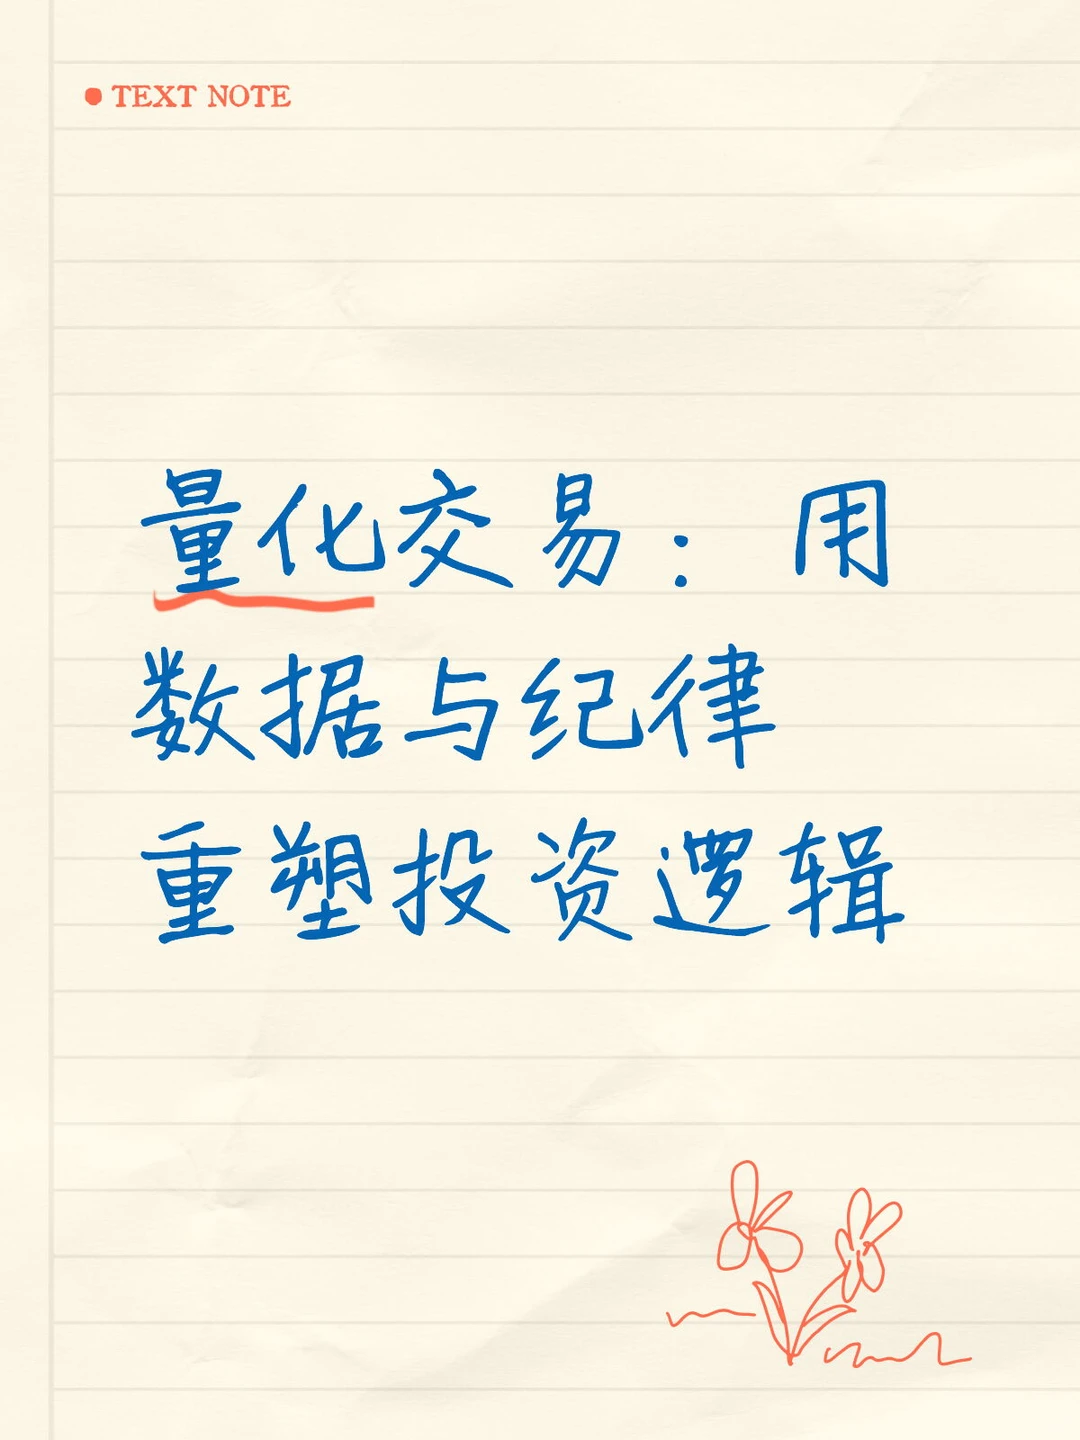 TEXT NOTE
量化交易：用
数据与纪律
重塑投资逻辑